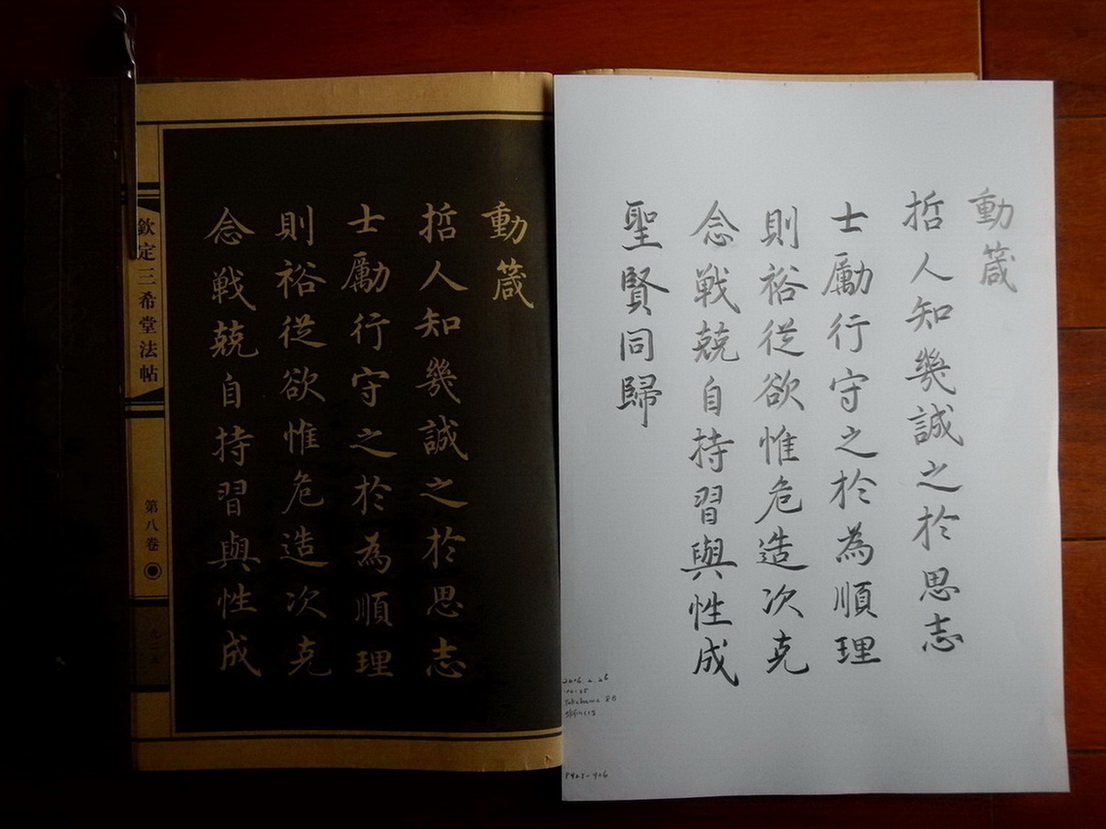 動箴
哲人知幾誠之於思志
士勵行守之於為順理
則裕從欲惟危造次克
念戦兢自持習與性成
欽定三希堂法帖
第八卷
動箴
哲人知幾誠之於思志
士勵行守之於為順理
則裕從欲惟危造次克
念戦兢自持習與性成
聖賢同歸